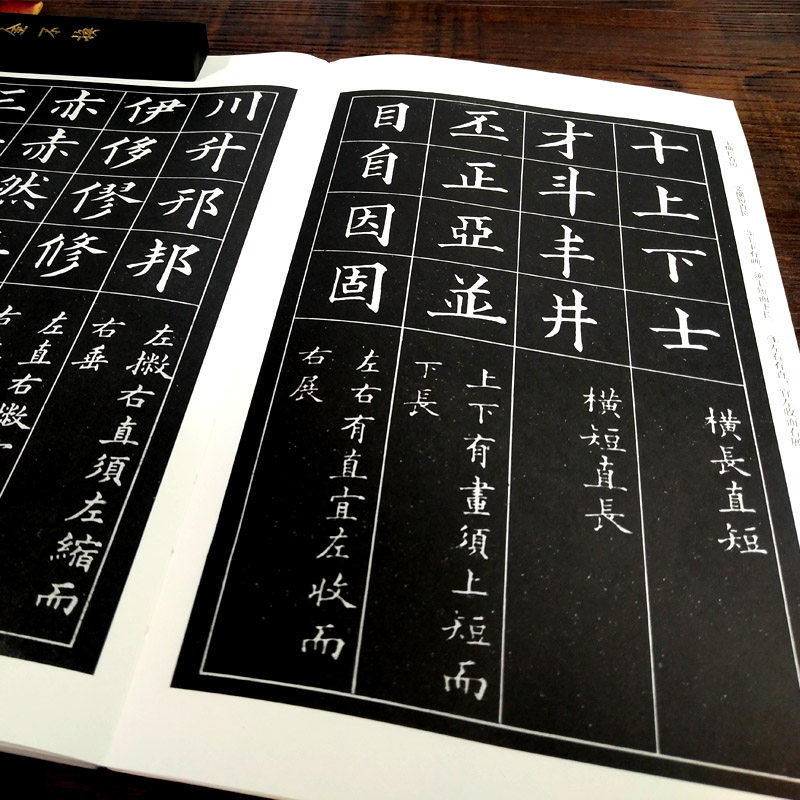 金不換
十上下士
橫長直短
才斗丰井
橫短直長
丕正亞並
上下有畫須上短而
下長
目自因固
左右有直宜左收而
右展
川升邢邦
左撇右直須左縮而
右垂
伊侈僇修
左直右撇
亦赤然